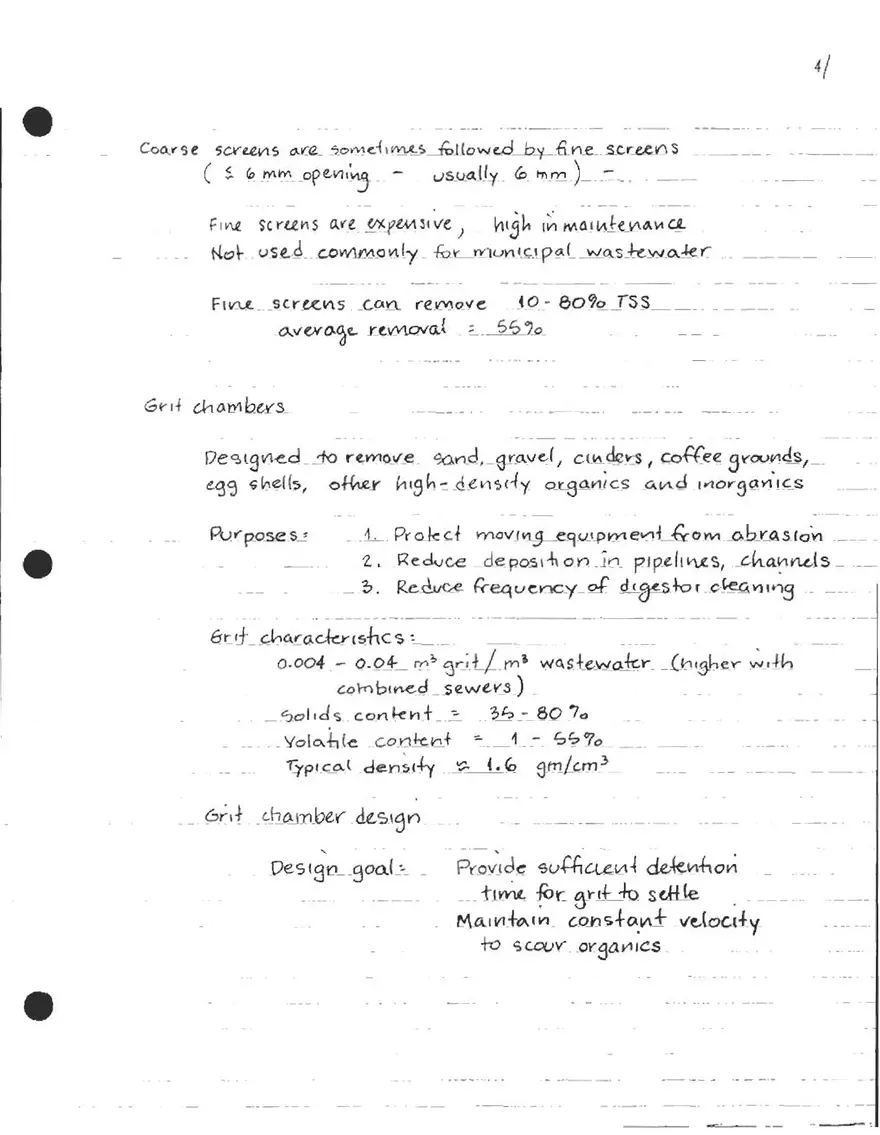 4/
Coarse screens are sometimes followed by fine screens
( ≤ 6 mm opening - usually 6 mm ) -
Fine screens are expensive, high in maintenance
Not used commonly for municipal wastewater
Fine screens can remove 10 - 80% TSS
average removal = 55%
Grit chambers
Designed to remove sand, gravel, cinders, coffee grounds,
egg shells, other high-density organics and inorganics
Purposes: 1. Protect moving equipment from abrasion
2. Reduce deposition in pipelines, channels
3. Reduce frequency of digestor cleaning
Grit characteristics:
0.004 - 0.04 m³ grit / m³ wastewater (higher with
combined sewers)
Solids content = 35 - 80 %
Volatile content = 1 - 55%
Typical density ≈ 1.6 gm/cm³
Grit chamber design
Design goal: Provide sufficient detention
time for grit to settle
Maintain constant velocity
to scour organics